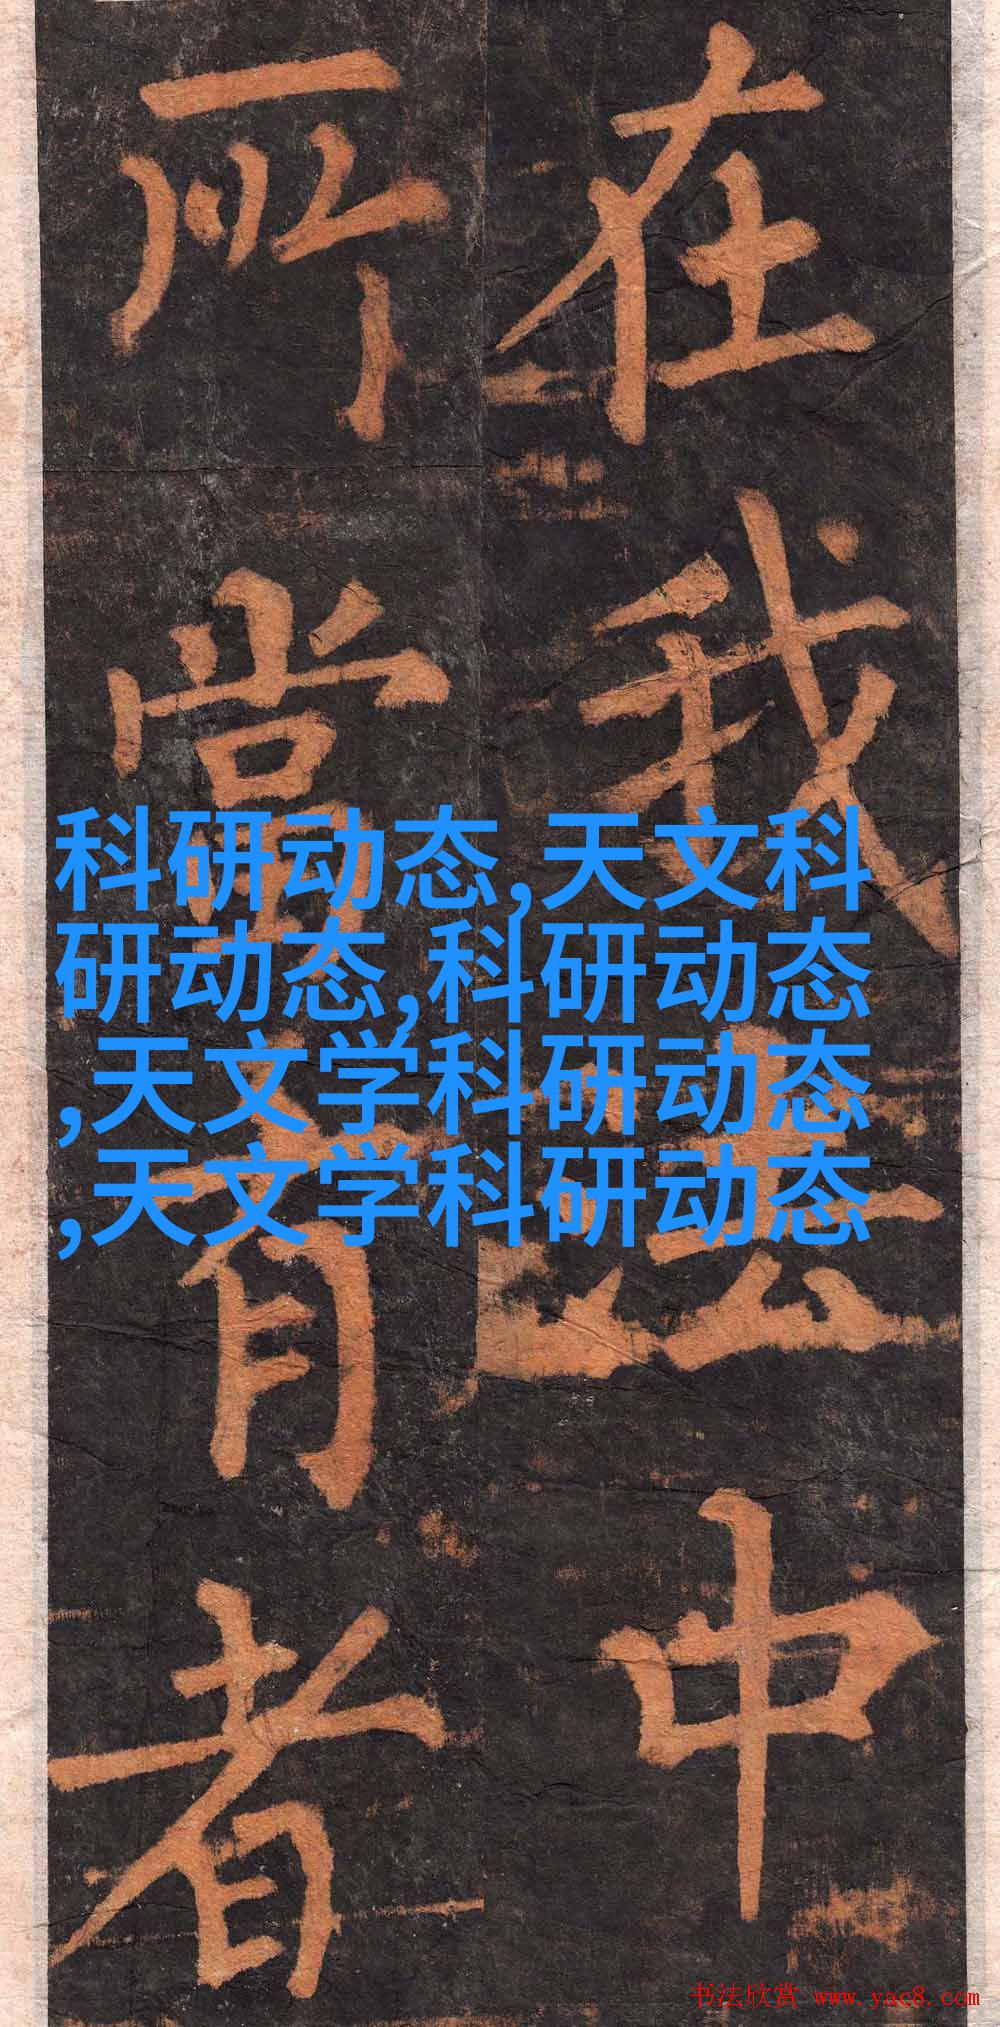 在我法中
所當有者
科研动态,天文科
研动态,科研动态
,天文学科研动态
,天文学科研动态
书法欣赏 www.yac8.com